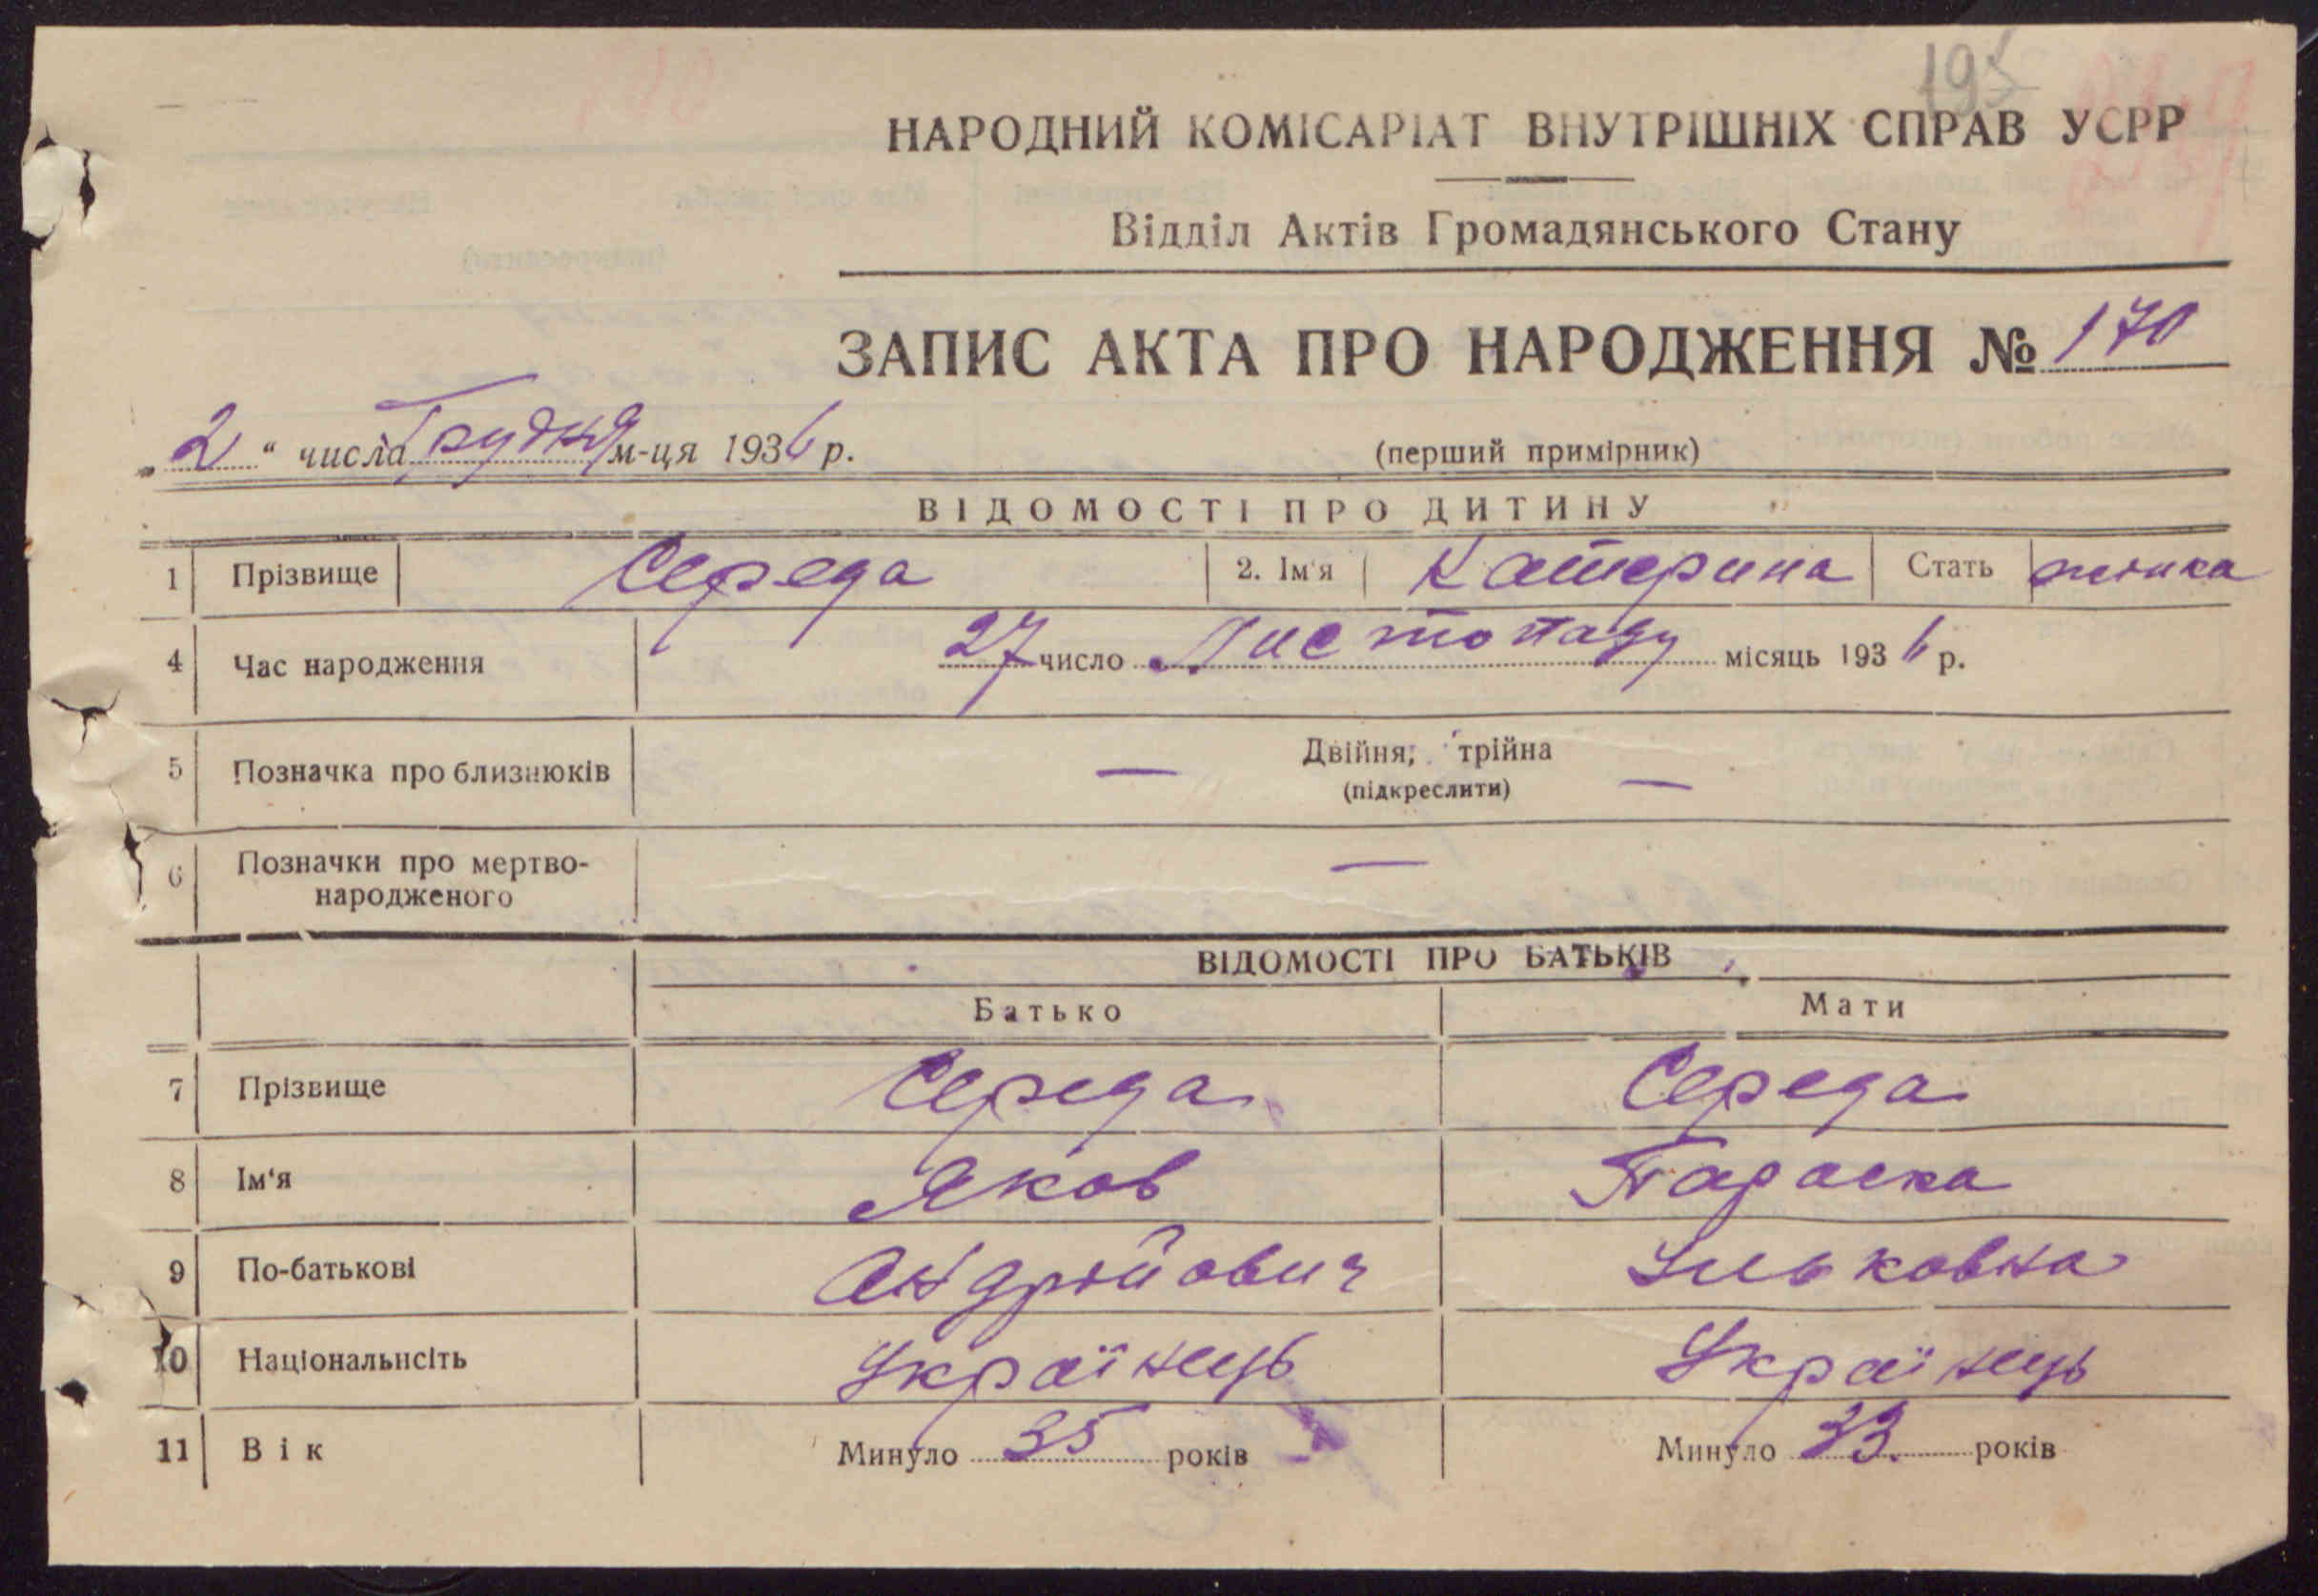 195
НАРОДНИЙ КОМІСАРІАТ ВНУТРІШНІХ СПРАВ УСРР
Відділ Актів Громадянського Стану
ЗАПИС АКТА ПРО НАРОДЖЕННЯ № 170
„2“ числа Грудня м-ця 1936 р.
(перший примірник)
ВІДОМОСТІ ПРО ДИТИНУ
1 Прізвище Середа 2. Ім'я Катерина Стать жінка
4 Час народження 27 число Листопаду місяць 1936 р.
5 Позначка про близнюків — Двійня, трійна —
(підкреслити)
6 Позначки про мертво-
народженого —
ВІДОМОСТІ ПРО БАТЬКІВ
Батько Мати
7 Прізвище Середа Середа
8 Ім'я Яков Параска
9 По-батькові Андрійович Ильковна
10 Національнсіть Українець Українець
11 Вік Минуло 35 років Минуло 33 років